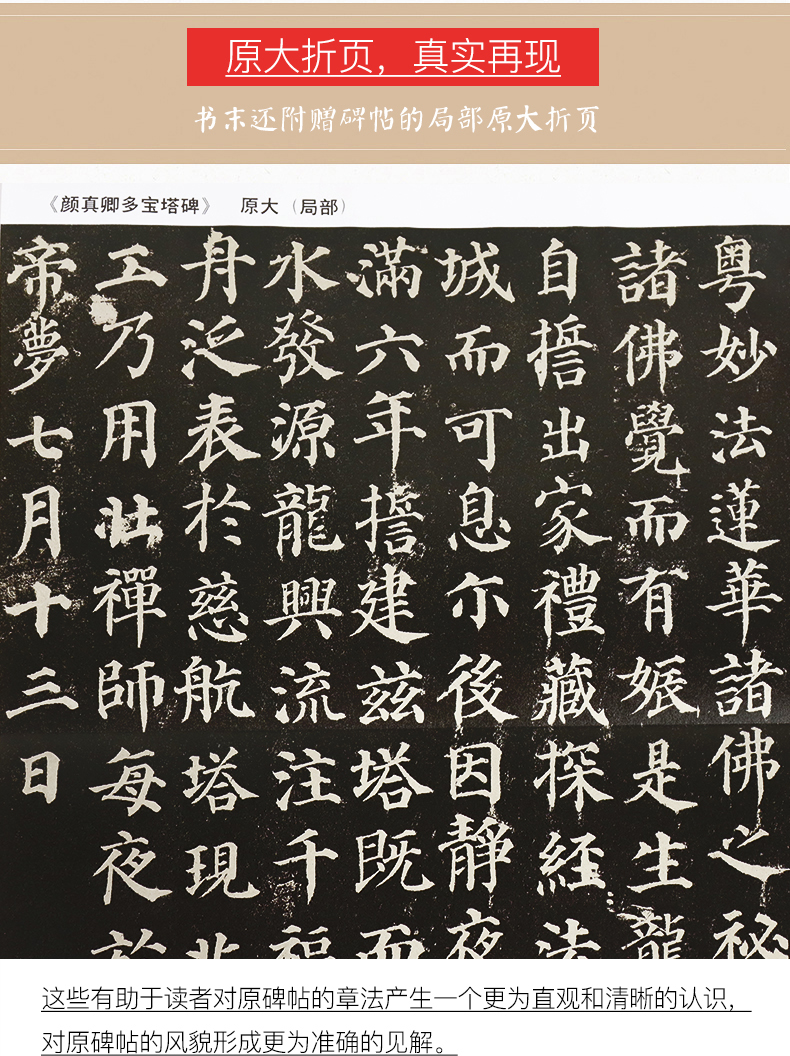 原大折页，真实再现
书末还附赠碑帖的局部原大折页
《颜真卿多宝塔碑》 原大（局部）
粤妙法莲華諸佛之秘
諸佛覺而有娠是生龍
自誓出家禮藏探經法
城而可息尒後因静夜
滿六年擔建兹塔既而
水發源龍興流注千福
舟泛表於慈航塔現
工乃用壯禪師每夜於
帝夢七月十三日
这些有助于读者对原碑帖的章法产生一个更为直观和清晰的认识，
对原碑帖的风貌形成更为准确的见解。